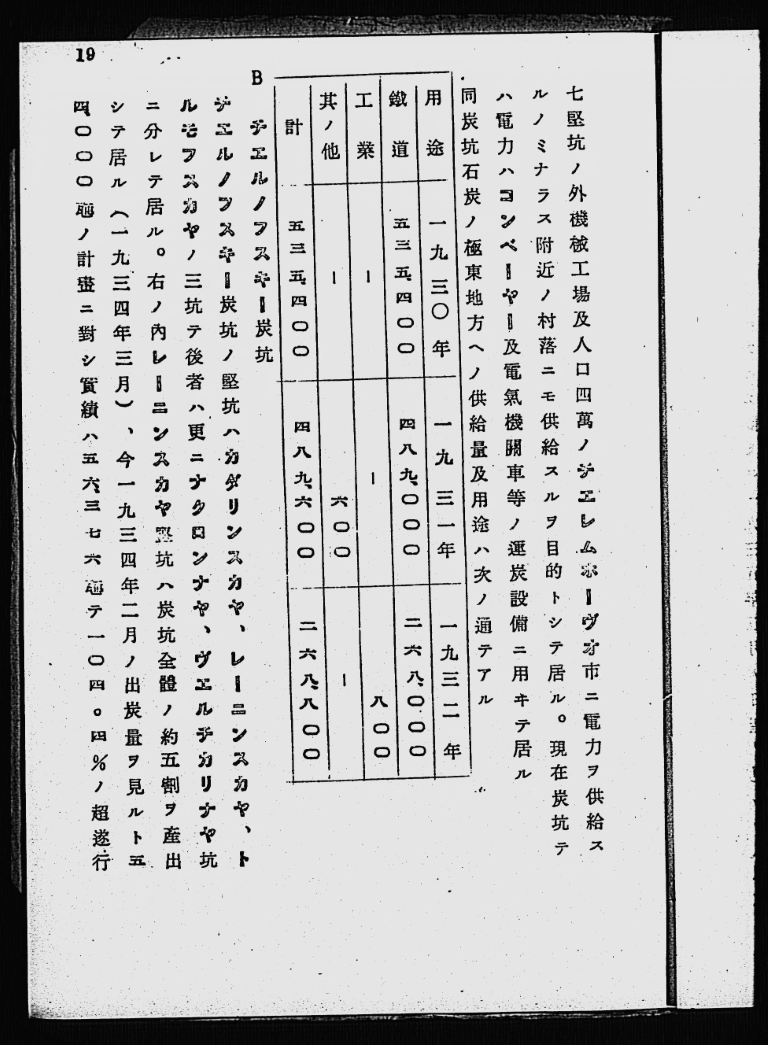 七堅坑ノ外機械工場及人口四萬ノチエレムホーヴオ市ニ電力ヲ供給ス
ルノミナラス附近ノ村落ニモ供給スルヲ目的トシテ居ル。現在炭坑テ
ハ電力ハコンベーヤー及電氣機關車等ノ運炭設備ニ用キテ居ル
同炭坑石炭ノ極東地方ヘノ供給量及用途ハ次ノ通テアル
用途 一九三〇年 一九三一年 一九三二年
鐵道 五三五、四〇〇 四八九、〇〇〇 二六八、〇〇〇
工業 ー ー 八〇〇
其ノ他 ー 六〇〇 ー
計 五三五、四〇〇 四八九、六〇〇 二六八、八〇〇
B チエルノフスキー炭坑
チエルノフスキー炭坑ノ堅坑ハカダリンスカヤ、レーニンスカヤ、ト
ルモフスカヤノ三坑テ後者ハ更ニナクロンナヤ、ヴエルチカリナヤ坑
ニ分レテ居ル。右ノ內レーニンスカヤ堅坑ハ炭坑全體ノ約五割ヲ產出
シテ居ル(一九三四年三月)、今一九三四年二月ノ出炭量ヲ見ルト五
四、〇〇〇瓲ノ計畫ニ對シ實績ハ五六、三七六瓲テ一〇四。四%ノ超遂行
19